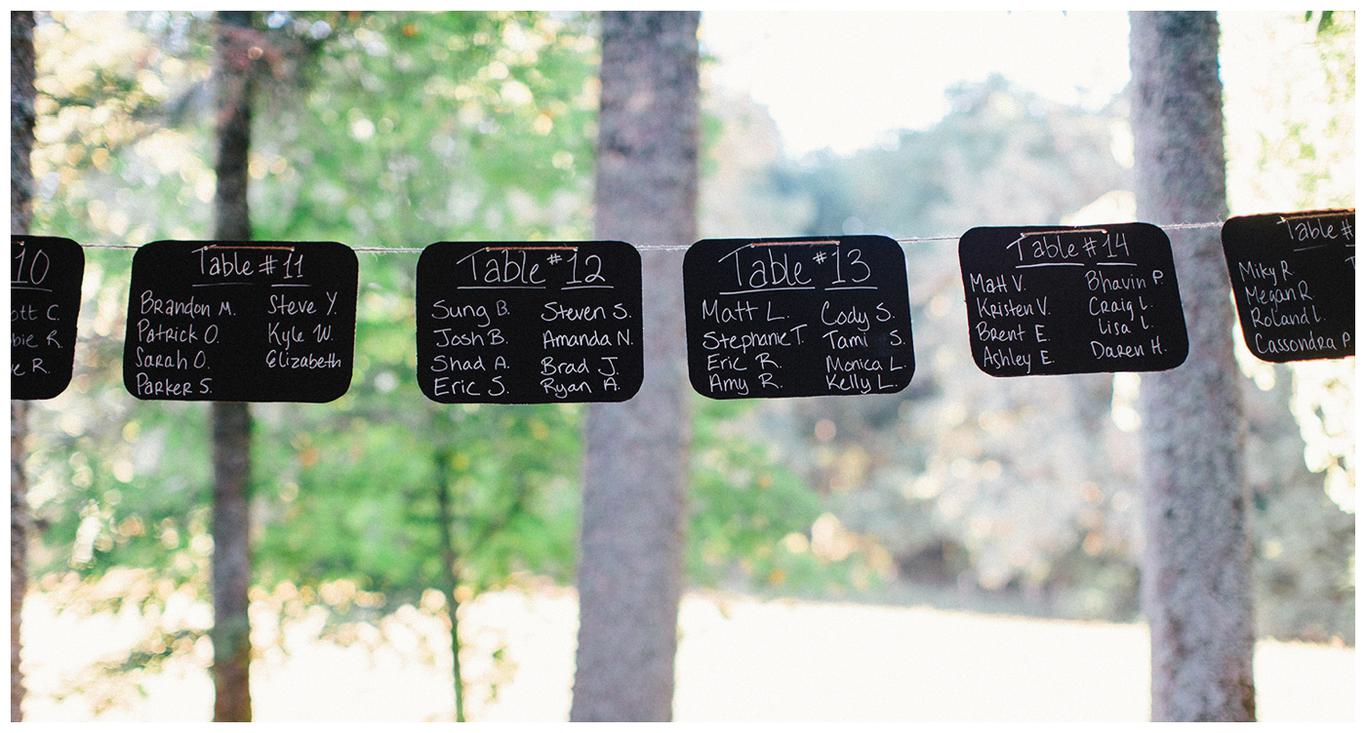 10
C.
R.
R.
Table #11
Brandon M. Steve Y.
Patrick O. Kyle W.
Sarah O. Elizabeth
Parker S.
Table #12
Sung B. Steven S.
Josh B. Amanda N.
Shad A. Brad J.
Eric S. Ryan A.
Table #13
Matt L. Cody S.
Stephanie T. Tami S.
Eric R. Monica L.
Amy R. Kelly L.
Table #14
Matt V. Bhavin P.
Kristen V. Craig L.
Brent E. Lisa L.
Ashley E. Daren H.
Table #
Miky R
Megan R
Roland L.
Cassondra P